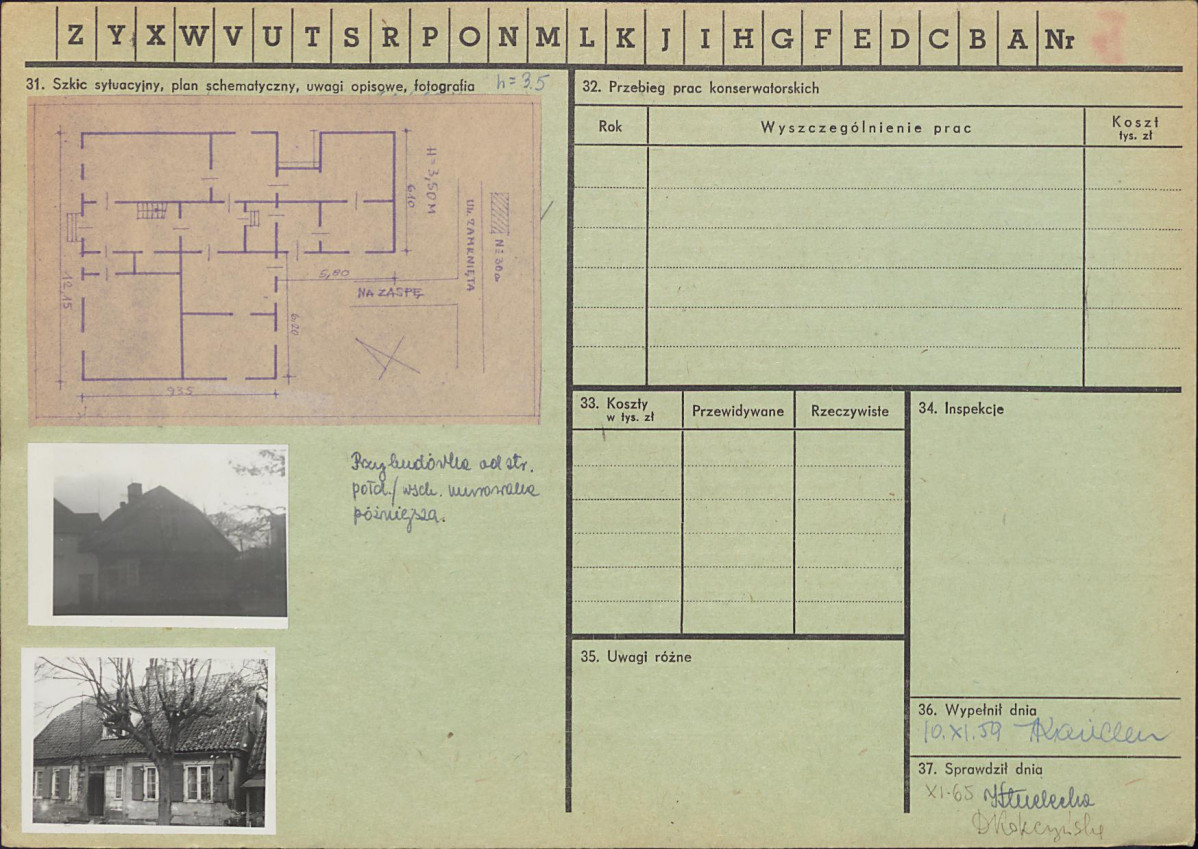 Z Y X W V U T S R P O N M L K J I H G F E D C B A Nr
31. Szkic sytuacyjny, plan schematyczny, uwagi opisowe, fotografia h = 3.5
H = 3,50 M
6.10
12.15
5,80
6.20
935
NA ZASPĘ
UL. ZAMKNIĘTA
Przybudówka od str.
połd./wsch. murowana
późniejsza.
32. Przebieg prac konserwatorskich
Rok
Wyszczególnienie prac
Koszt
tys. zł
33. Koszty
w tys. zł
Przewidywane
Rzeczywiste
34. Inspekcje
35. Uwagi różne
36. Wypełnił dnia
10.XI.59
37. Sprawdził dnia
XI.65